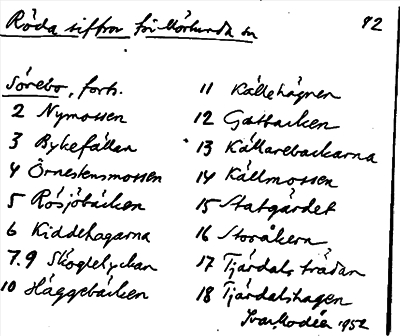 Röda siffror för Mörlunda sn
92
Sörebo, forts.
2 Nymossen
3 Bykefällan
4 Örnestensmossen
5 Rösjöbäcken
6 Kiddehagarna
7.9 Skogtelyckan
10 Häggebäcken
11 Källehagnen
12 Gatbacken
13 Källarebackarna
14 Källmossen
15 Statgärdet
16 Storåkern
17 Tjärdals trädan
18 Tjärdalshagen
1952